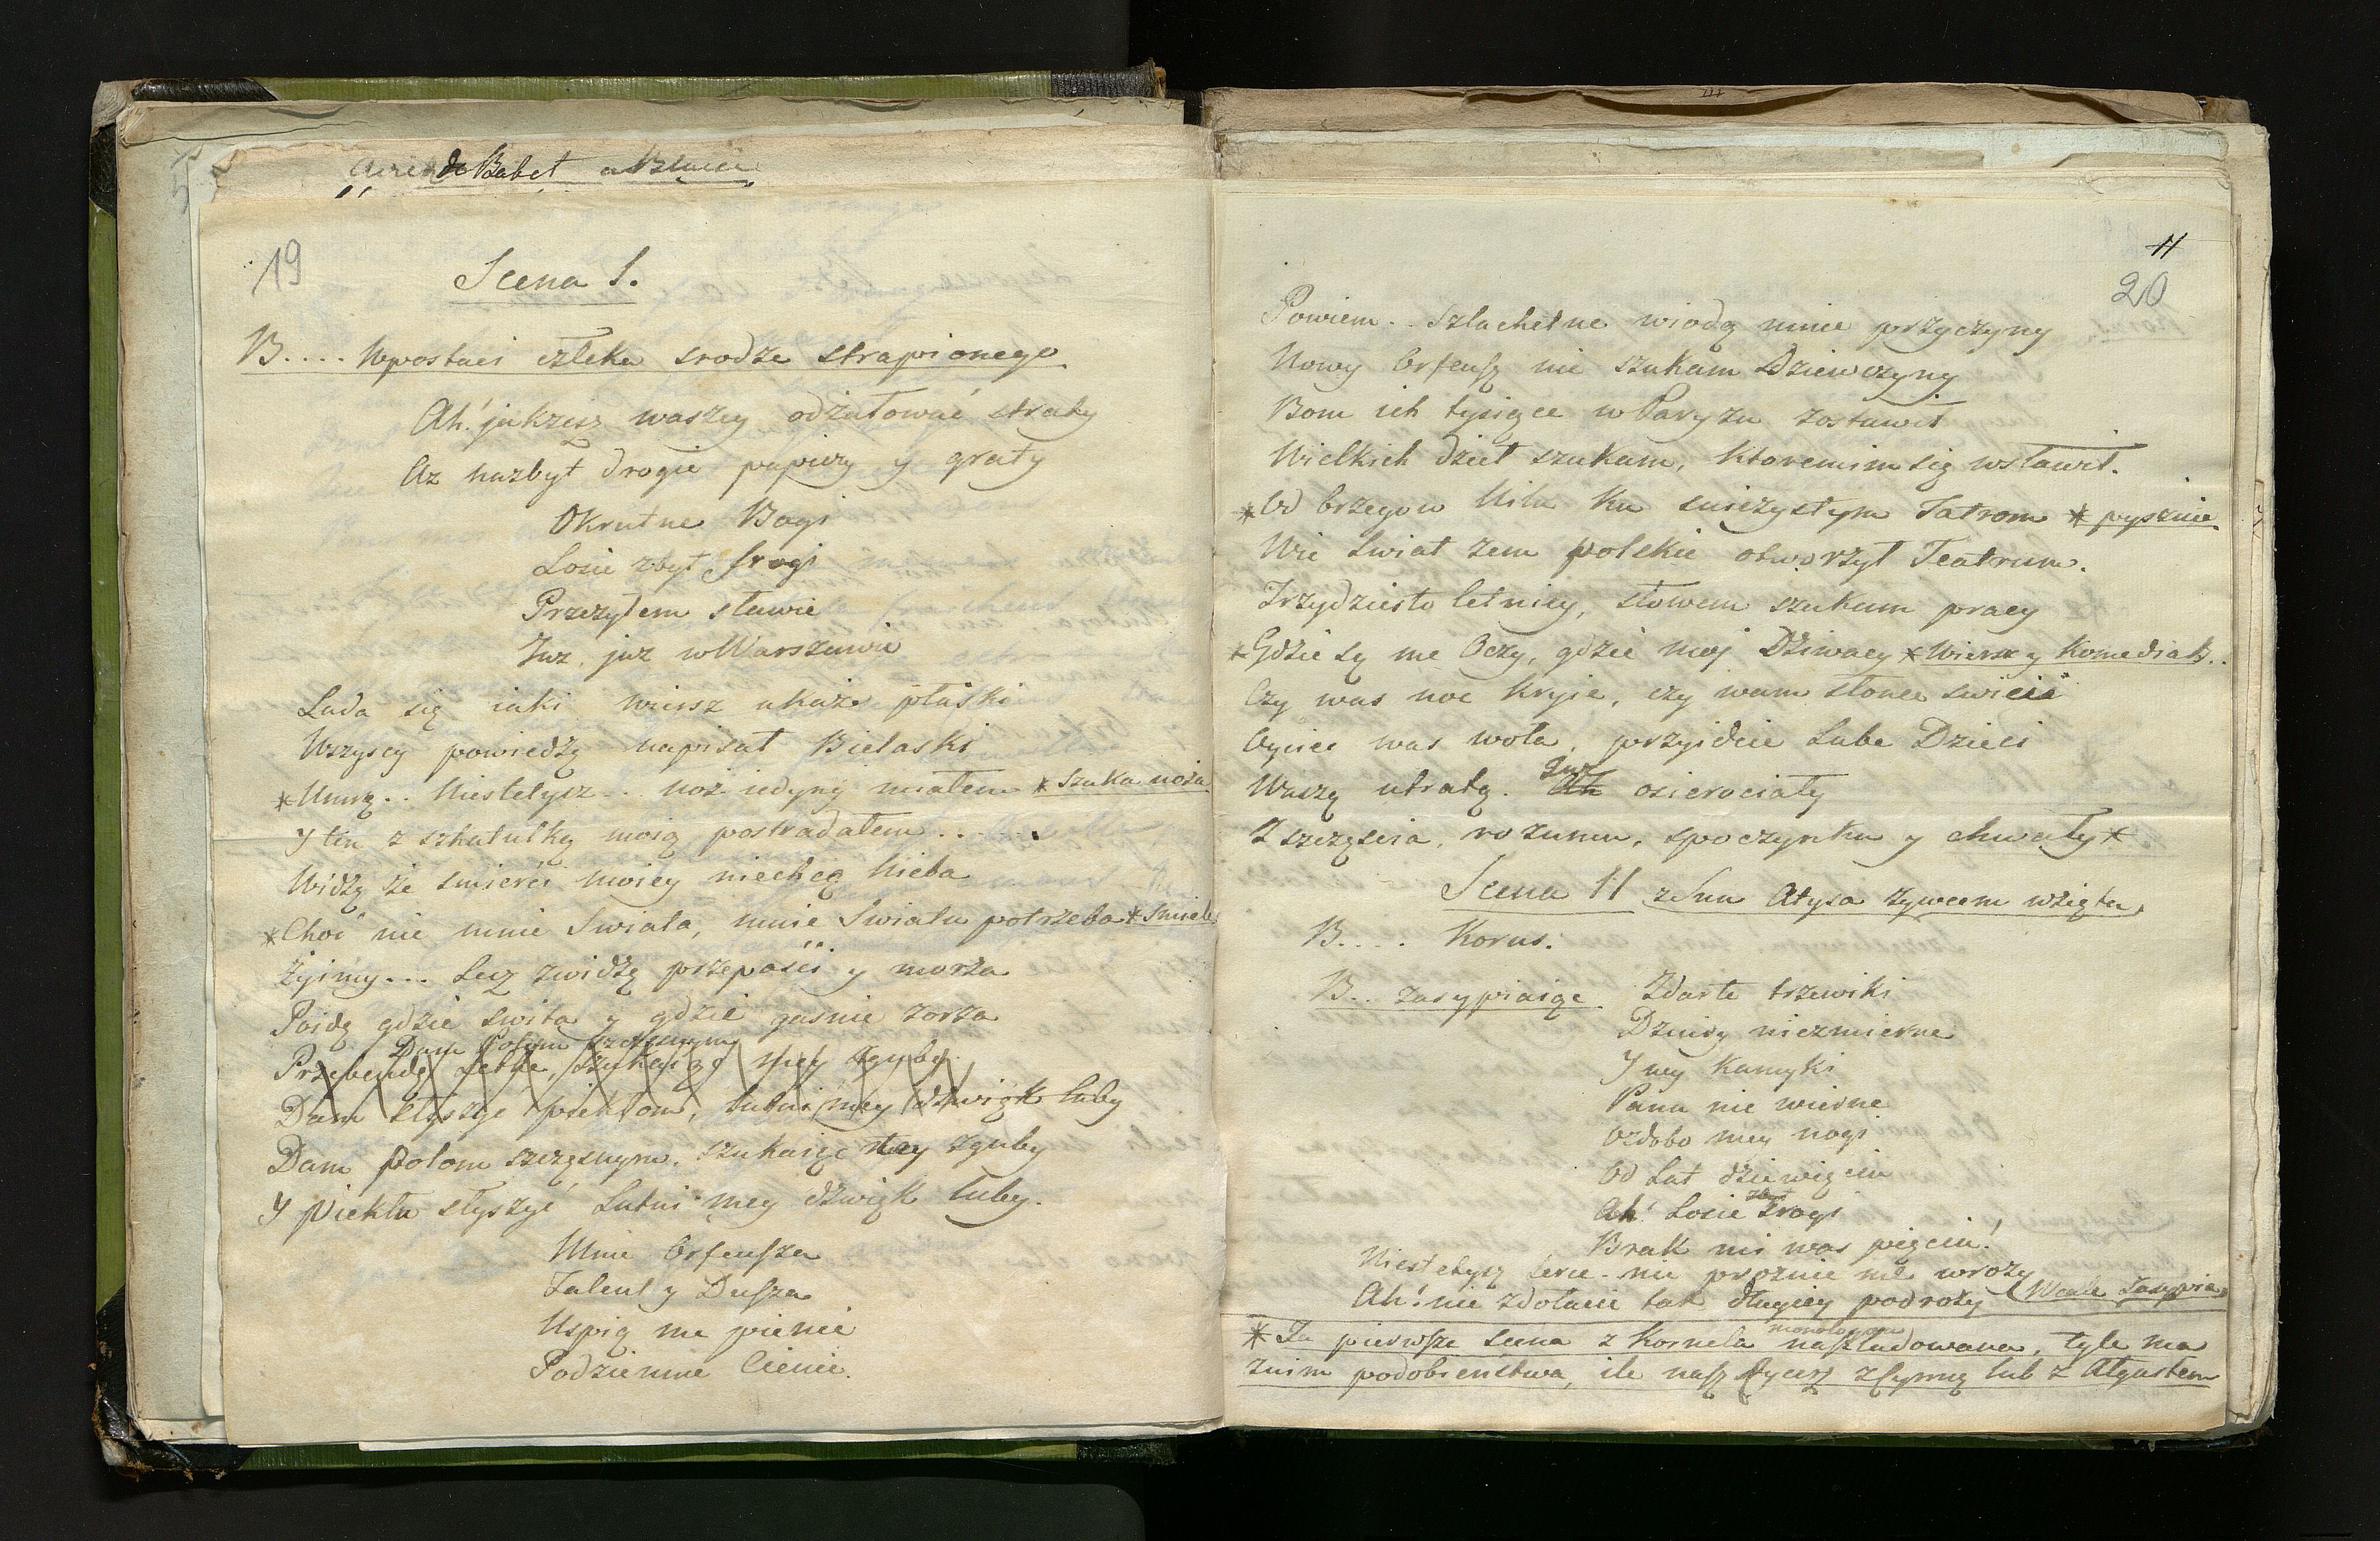 do Babet
19
Scena I.
B.... W postaci człeka srodze strapionego.
Ah! jakżesz waszey odżałować straty
Az nazbyt drogie papiery y graty
Okrutne Bogi
Losie zbyt srogi
Przezyłem sławie
Juz, juz w Warszawie
Lada się iaki wiersz ukaże płaski
Wszyscy powiedzą napisał Bielaski
*Umrę.. Niestetysz.. noż iedyny miałem *szuka noża
Y ten z szkatułką moią postradałem......
Widzę że smierci moiey niechcą Nieba
*Choć nie mnie Swiata, mnie Swiatu potrzeba *smiele
Żyimy... Lecz zwidzę przepaści y morza
Poidę gdzie swita y gdzie gasnie zorza
Dam Polom szczęsnym
Przebędę Lethe, szukaiąc mey zguby
Dam słyszyć piekłom, lutni mey dzwięk luby
Dam polom szczęsnym, szukaiąc mey zguby
Y piekłu słyszyć Lutni mey dzwięk luby.
Mnie Orfeusza
Talent y Dusza
Uspią me pienie
Podziemne Cienie.
11
20
Powiem.. Szlachetne wiodą mnie przyczyny
Nowy Orfeusz nie szukam Dziewczyny
Bom ich tysiące w Paryzu zostawił
Wielkich dzieł szukam, ktoremim się wsławił.
*Od brzegow Nilu ku snieżystym Tatrom *pysznie
Wie swiat zem polskie otworzył Teatrum.
Trzydziesto letniey, słowem szukam pracy
*Gdzie są me Oczy, gdzie moj Dziwacy *Wiersz y Komediab..
Czy was noc kryie, czy wam słonce swieci
Oyciec was woła, przyidcie Lube Dzieci
Waszą utratą. Juz Ah osierociały
Z szczęscia, rozumu, spoczynku y chwały *
Scena II ze Snu Atysa zywcem wzięta.
B.... Korus.
B.. zasypiaiąc Zdarte trzewiki
Dziury niezmierne
Y wy Kamyki
Panu nie wierne
Ozdobo mey nogi
Od Lat dziewięciu
Ah! Losie zbyt srogi
Brak mi was pięciu!
Niestetysz serce nie proznie me wrozy
Ah! nie zdołacie tak długiey podroży (Wcale Zasypia)
*Ta pierwsze scena z Kornela monologow naszladowana, tyle ma
znim podobienstwa, ile nasz Rycerz z Cynną lub z Atgustem